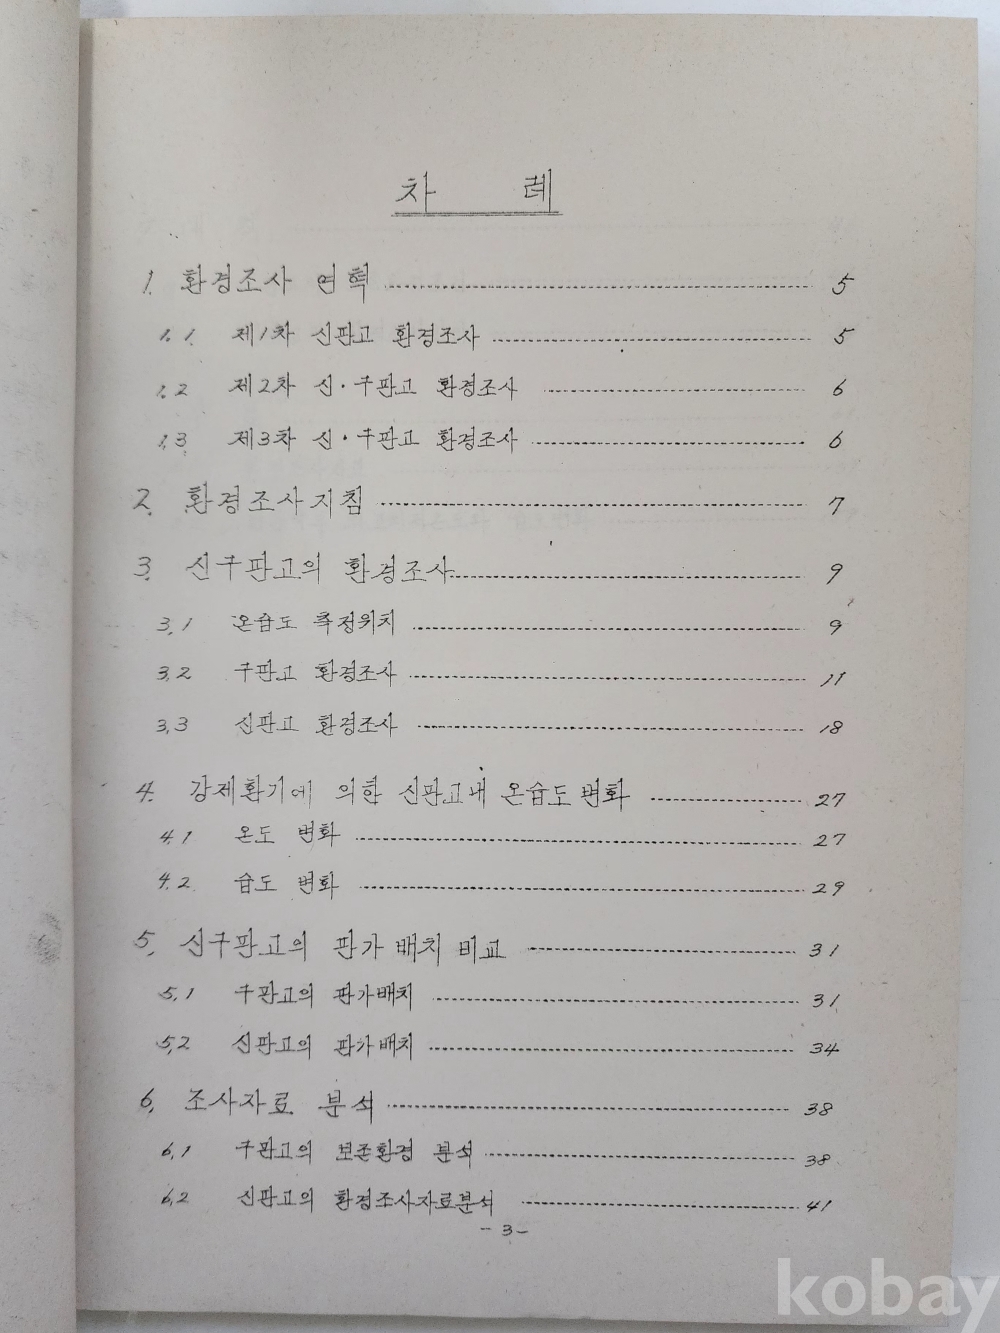 차 례
1. 환경조사 연혁 5
1.1 제1차 신판고 환경조사 5
1.2 제2차 신·구판고 환경조사 6
1.3 제3차 신·구판고 환경조사 6
2. 환경조사지침 7
3. 신구판고의 환경조사 9
3.1 온습도 측정위치 9
3.2 구판고 환경조사 11
3.3 신판고 환경조사 18
4. 강제환기에 의한 신판고내 온습도변화 27
4.1 온도 변화 27
4.2 습도 변화 29
5. 신구판고의 판가 배치 비교 31
5.1 구판고의 판가배치 31
5.2 신판고의 판가배치 34
6. 조사자료 분석 38
6.1 구판고의 보존환경 분석 38
6.2 신판고의 환경조사자료분석 41
- 3 -
kobay